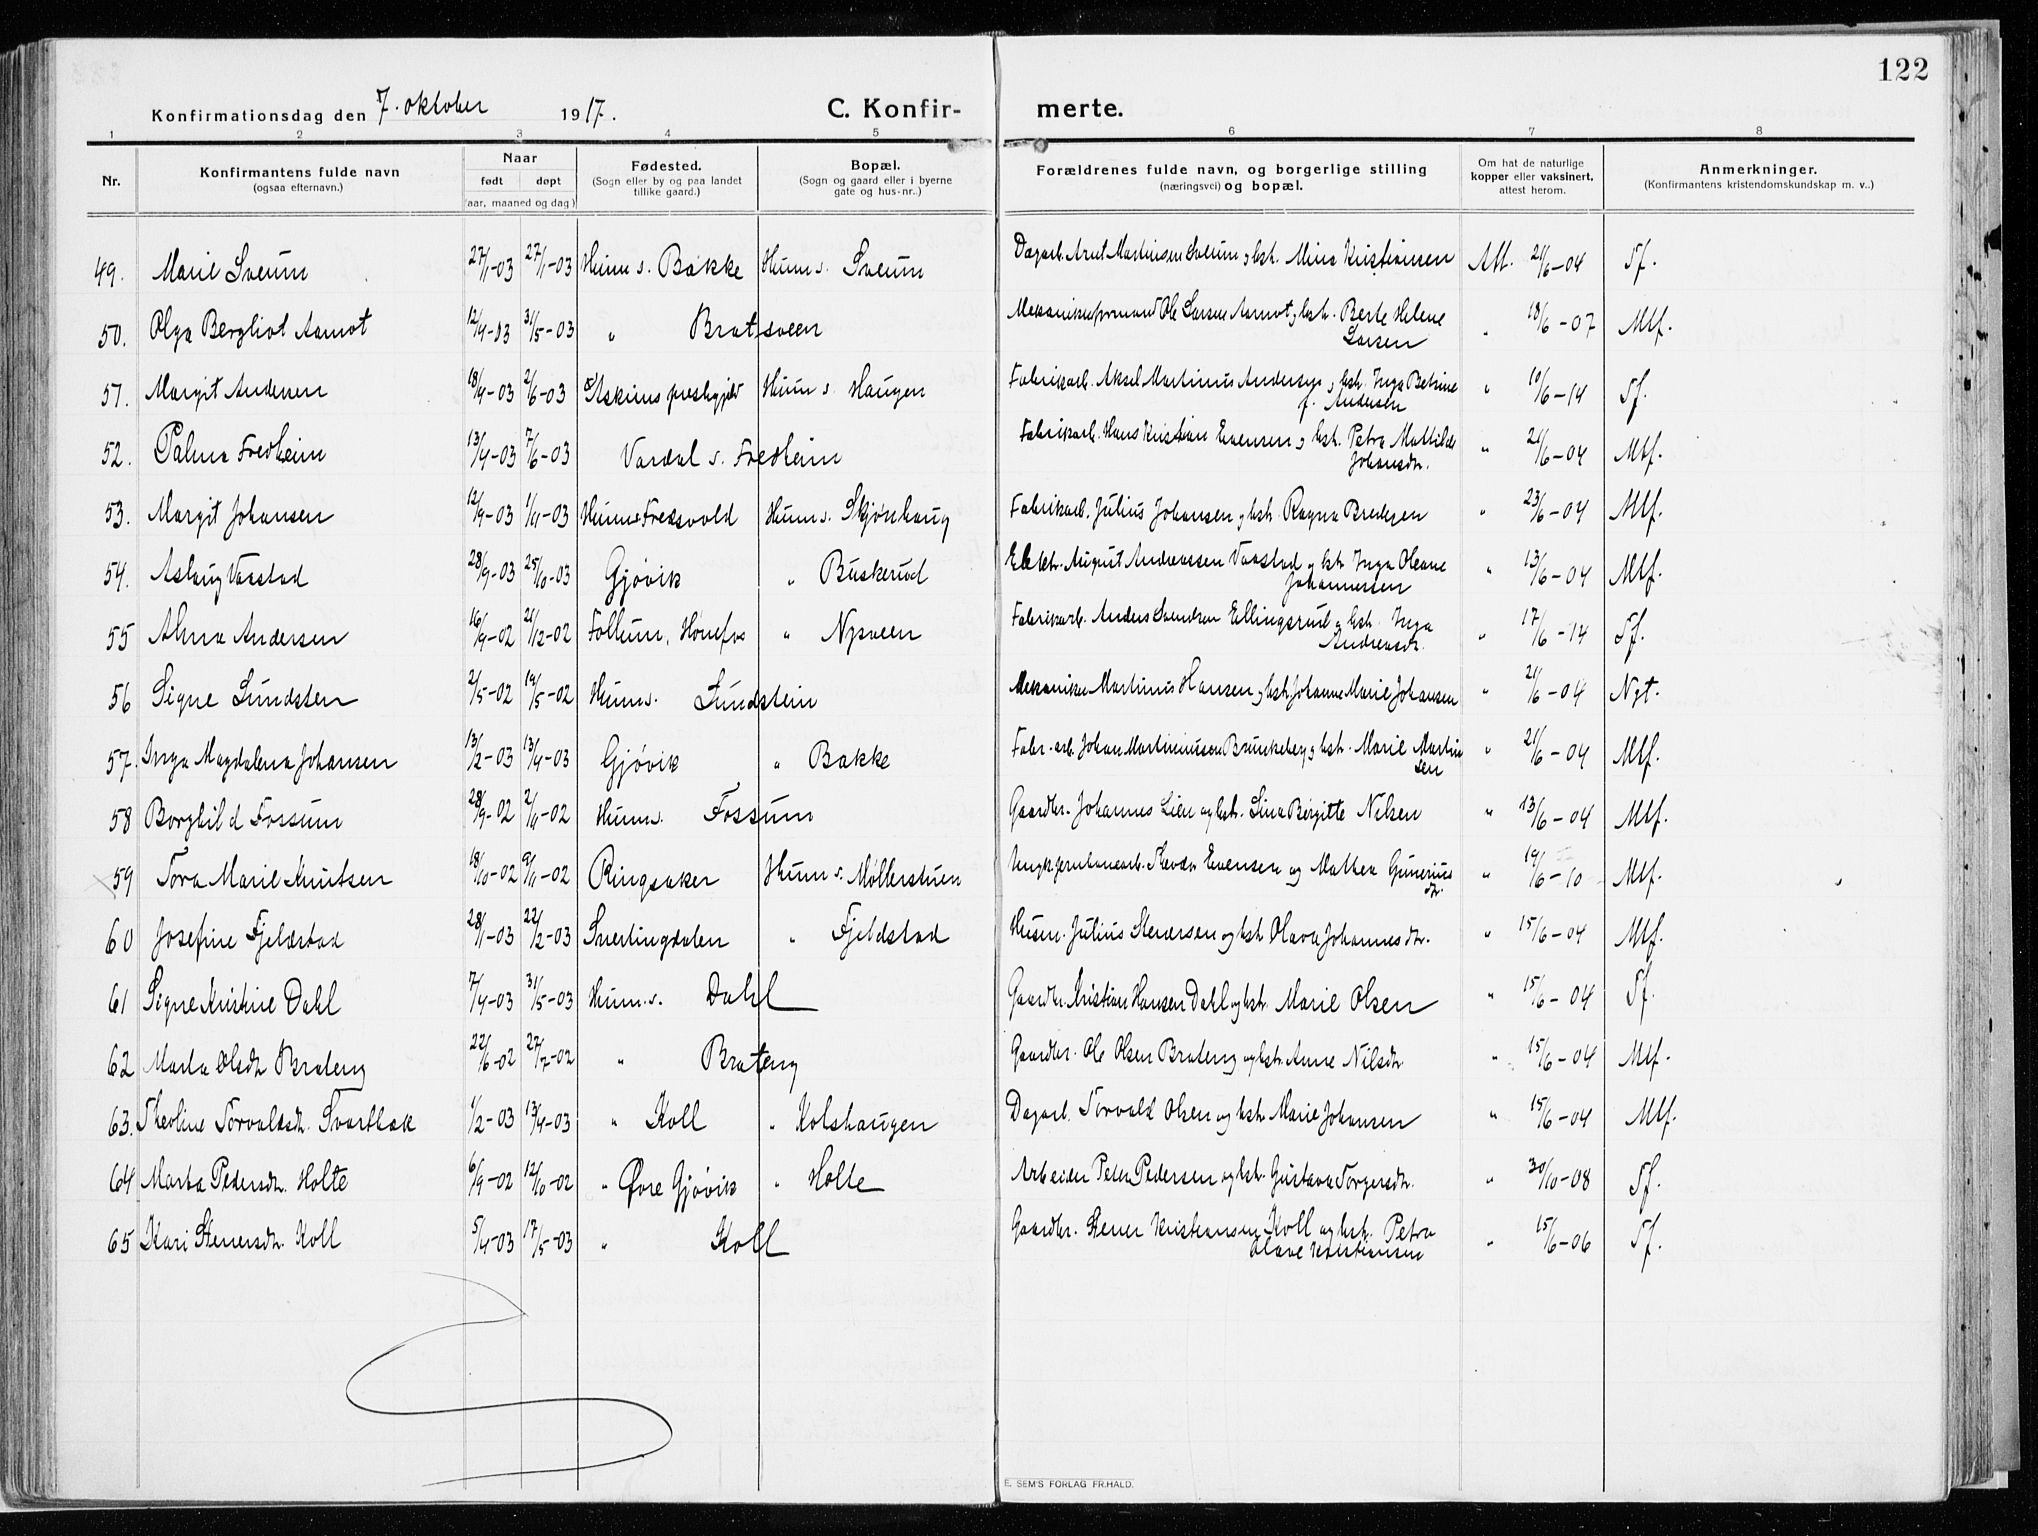 122
Konfirmationsdag den 7. oktober 1917.
C. Konfirmerte.
1 2 3 4 5 6 7 8
Nr.
Konfirmantens fulde navn
(ogsaa efternavn.)
Naar
født døpt
(aar, maaned og dag)
Fødested.
(Sogn eller by og paa landet
tillike gaard.)
Bopæl.
(Sogn og gaard eller i byerne
gate og hus-nr..)
Forældrenes fulde navn, og borgerlige stilling
(næringsvei) og bopæl.
Om hat de naturlige
kopper eller vaksinert,
attest herom.
Anmerkninger.
(Konfirmantens kristendomskundskap m. v..)
49. Marie Sveum 27/1-03 27/1-03 Hunn s. Bakke Hunn s. Sveum Dagarb. Arnt Martinsen Sveum og hst. Mina Kristiansen Att. 21/6-04 Sf.
50. Olga Bergliot Aamot 12/4-03 31/5-03 " Bratsveen Mekanikerformand Ole Larsen Aamot og hst. Berte Helene Larsen " 18/6-07 Mtf.
51. Margit Andersen 18/4-03 2/6-03 Askims prestegjeld Hunn s. Haugen Fabrikarb. Aksel Martinius Andersen og hst. Inga Betrine f. Andersen " 10/6-14 Sf.
52. Palma Fredheim 13/4-03 7/6-03 Vardal s. Fredheim Fabrikarb. Hans Kristian Evensen og hst. Petra Mathilde Johansdtr. " 21/6-04 Mtf.
53. Margit Johansen 12/9-03 1/11-03 Hunn s. Fredsvold Hunn s. Skjønhaug Fabrikarb. Julius Johansen og hst. Ragna Bredesen " 23/6-04 Mtf.
54. Aslaug Vaastad 28/9-03 25/10-03 Gjøvik " Buskerud Elektr. August Andreassen Vaastad og hst. Inga Oleane Johannessen " 13/6-04 Mtf.
55 Alma Andersen 16/9-02 21/12-02 Follum, Hønefos " Nysveen Fabrikarb. Anders Svendsen Ellingsrud og hst. Inga Andreasdtr. " 17/6-14 Sf.
56 Signe Lundsten 2/5-02 19/5-02 Hunn s. Lundstein Mekaniker Martinus Hansen og hst. Johanne Marie Johansen " 21/6-04 Ngt.
57. Inga Magdalena Johansen 13/2-03 13/4-03 Gjøvik " Bakke Fabr.-arb. Johan Martiniussen Brunkeberg og hst. Marie Martinsen " 21/6-04 Mtf.
58 Borghild Fossum 28/9-02 2/11-02 Hunn s. Fossum Gaardbr. Johannes Lien og hst. Lina Birgitte Nilsen " 13/6-04 Mtf.
59 Tora Marie Knutsen 18/10-02 9/11-02 Ringsaker Hunn s. Møllerstuen Ungk. jernbanearb. Evensen og Mathea Guneriusdtr. " 19/6-10 Mtf.
60 Josefine Fjeldstad 28/1-03 22/2-03 Snertingdalen " Fjeldstad Husm. Julius Stenersen og hst. Olava Johannesdtr. " 15/6-04 Mtf.
61 Signe Kristine Dahl 7/4-03 31/5-03 Hunn s. Dahl Gaardbr. Kristian Hansen Dahl og hst. Marie Olsen " 15/6-04 Sf.
62 Marta Olsdtr. Brateng 22/6-02 27/7-02 " Brateng Gaardbr. Ole Olsen Brateng og hst. Anne Nilsdtr " 15/6-04 Mtf.
63. Theoline Torvaldsdtr. Svartbak 1/2-03 13/4-03 " Koll " Kolshaugen Dagarb. Torvald Olsen og hst. Marie Johansen " 15/6-04 Mtf.
64 Marta Pedersdtr. Holte 6/9-02 12/10-02 " Øvre Gjøvik " Holte Arbeider Peter Pedersen og hst. Gustava Torgersdtr. " 30/10-08 Sf.
65 Kari Stenersdtr. Koll 5/4-03 17/5-03 " Koll Gaardbr. Stener Kristiansen Koll og hst. Petra Olave Kristiansen " 15/6-06 Sf.
E. SEM'S FORLAG FR.HALD.